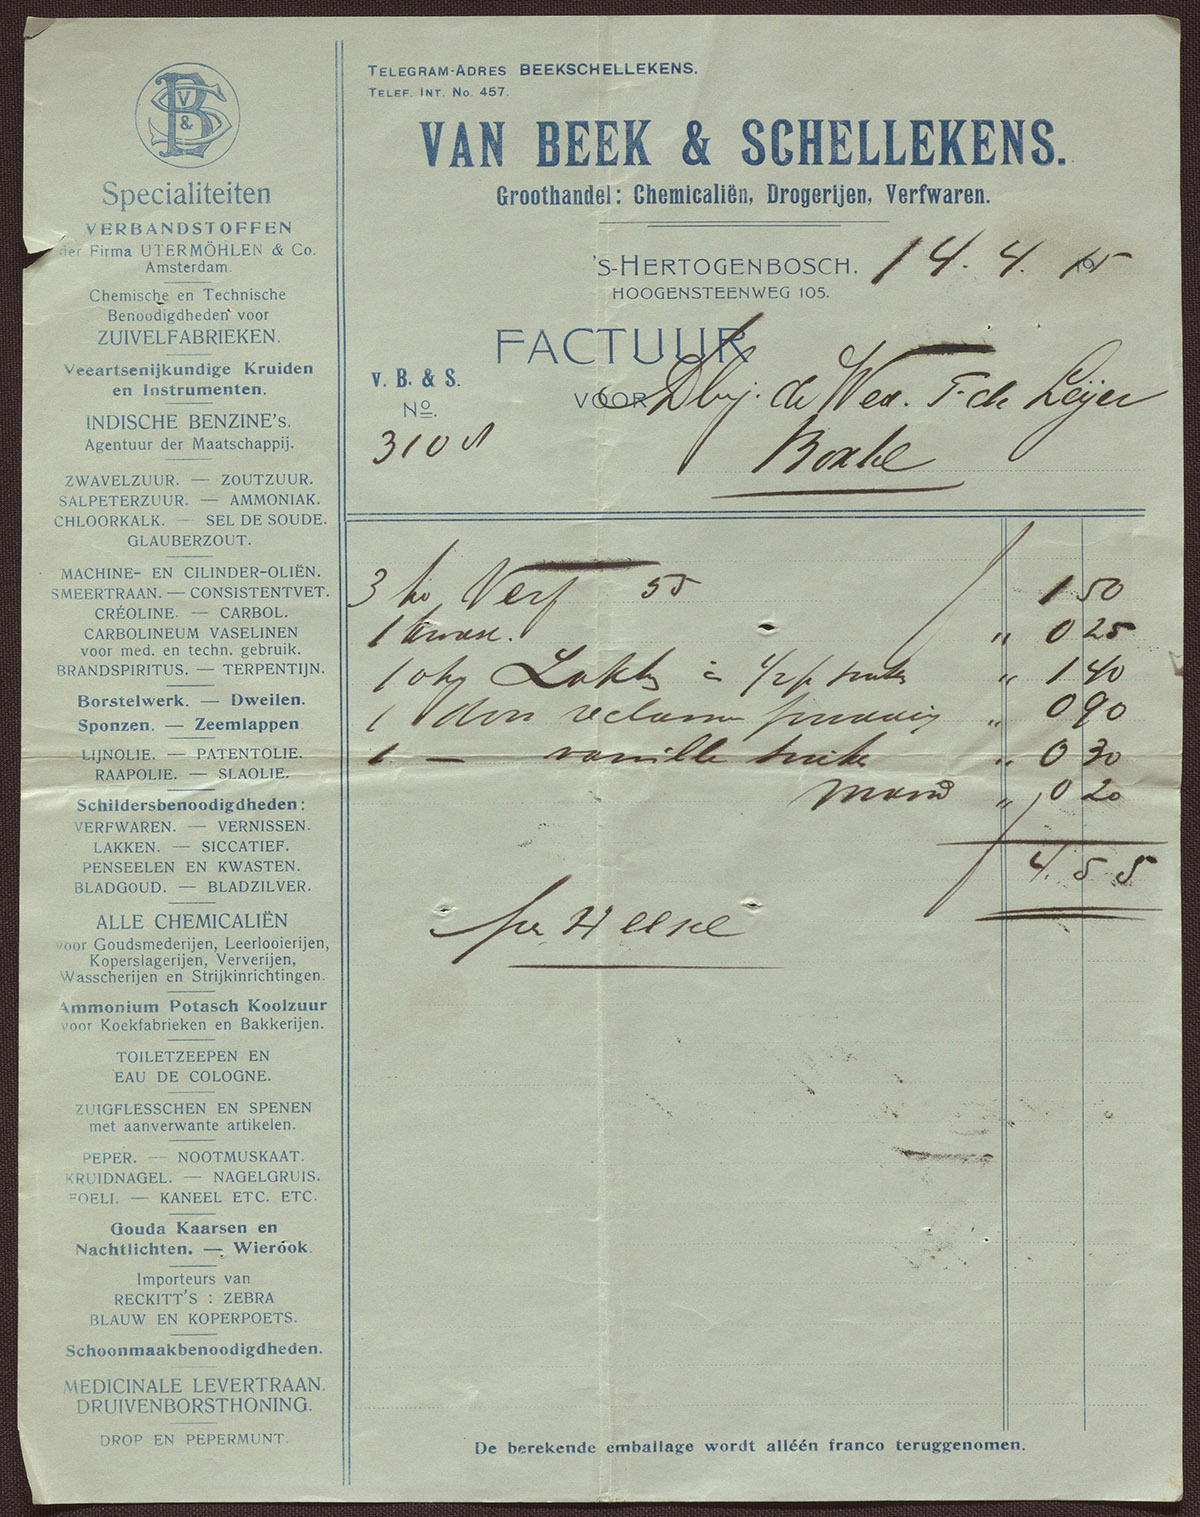 V
B S
&
Specialiteiten
VERBANDSTOFFEN
der Firma UTERMÖHLEN & Co.
Amsterdam.
Chemische en Technische
Benoodigdheden voor
ZUIVELFABRIEKEN.
Veeartsenijkundige Kruiden
en Instrumenten.
INDISCHE BENZINE's.
Agentuur der Maatschappij.
ZWAVELZUUR. — ZOUTZUUR.
SALPETERZUUR. — AMMONIAK.
CHLOORKALK. — SEL DE SOUDE.
GLAUBERZOUT.
MACHINE- EN CILINDER-OLIËN.
SMEERTRAAN. — CONSISTENTVET.
CRÉOLINE. — CARBOL.
CARBOLINEUM VASELINEN
voor med. en techn. gebruik.
BRANDSPIRITUS. — TERPENTIJN.
Borstelwerk. — Dweilen.
Sponzen. — Zeemlappen
LIJNOLIE. — PATENTOLIE.
RAAPOLIE. — SLAOLIE.
Schildersbenoodigdheden:
VERFWAREN. — VERNISSEN.
LAKKEN. — SICCATIEF.
PENSEELEN EN KWASTEN.
BLADGOUD. — BLADZILVER.
ALLE CHEMICALIËN
voor Goudsmederijen, Leerlooierijen,
Koperslagerijen, Ververijen,
Wasscherijen en Strijkinrichtingen.
Ammonium Potasch Koolzuur
voor Koekfabrieken en Bakkerijen.
TOILETZEEPEN EN
EAU DE COLOGNE.
ZUIGFLESSCHEN EN SPENEN
met aanverwante artikelen.
PEPER. — NOOTMUSKAAT.
KRUIDNAGEL. — NAGELGRUIS.
FOELI. — KANEEL ETC. ETC.
Gouda Kaarsen en
Nachtlichten. — Wierook.
Importeurs van
RECKITT'S : ZEBRA
BLAUW EN KOPERPOETS.
Schoonmaakbenoodigdheden.
MEDICINALE LEVERTRAAN.
DRUIVENBORSTHONING.
DROP EN PEPERMUNT.
TELEGRAM-ADRES BEEKSCHELLEKENS.
TELEF. INT. No. 457.
VAN BEEK & SCHELLEKENS.
Groothandel: Chemicaliën, Drogerijen, Verfwaren.
'S-HERTOGENBOSCH. 14.4.15
HOOGENSTEENWEG 105.
FACTUUR
V. B. & S.
No.
VOOR de Wed. F. de Leijer
310
Boxtel
3 ko Verf 55 1 50
1 kwast. " 0 25
1 " 1 40
1 reclame " 0 90
1 — vanille suiker " 0 30
mand " 0 20
4.55
per
De berekende emballage wordt alléén franco teruggenomen.